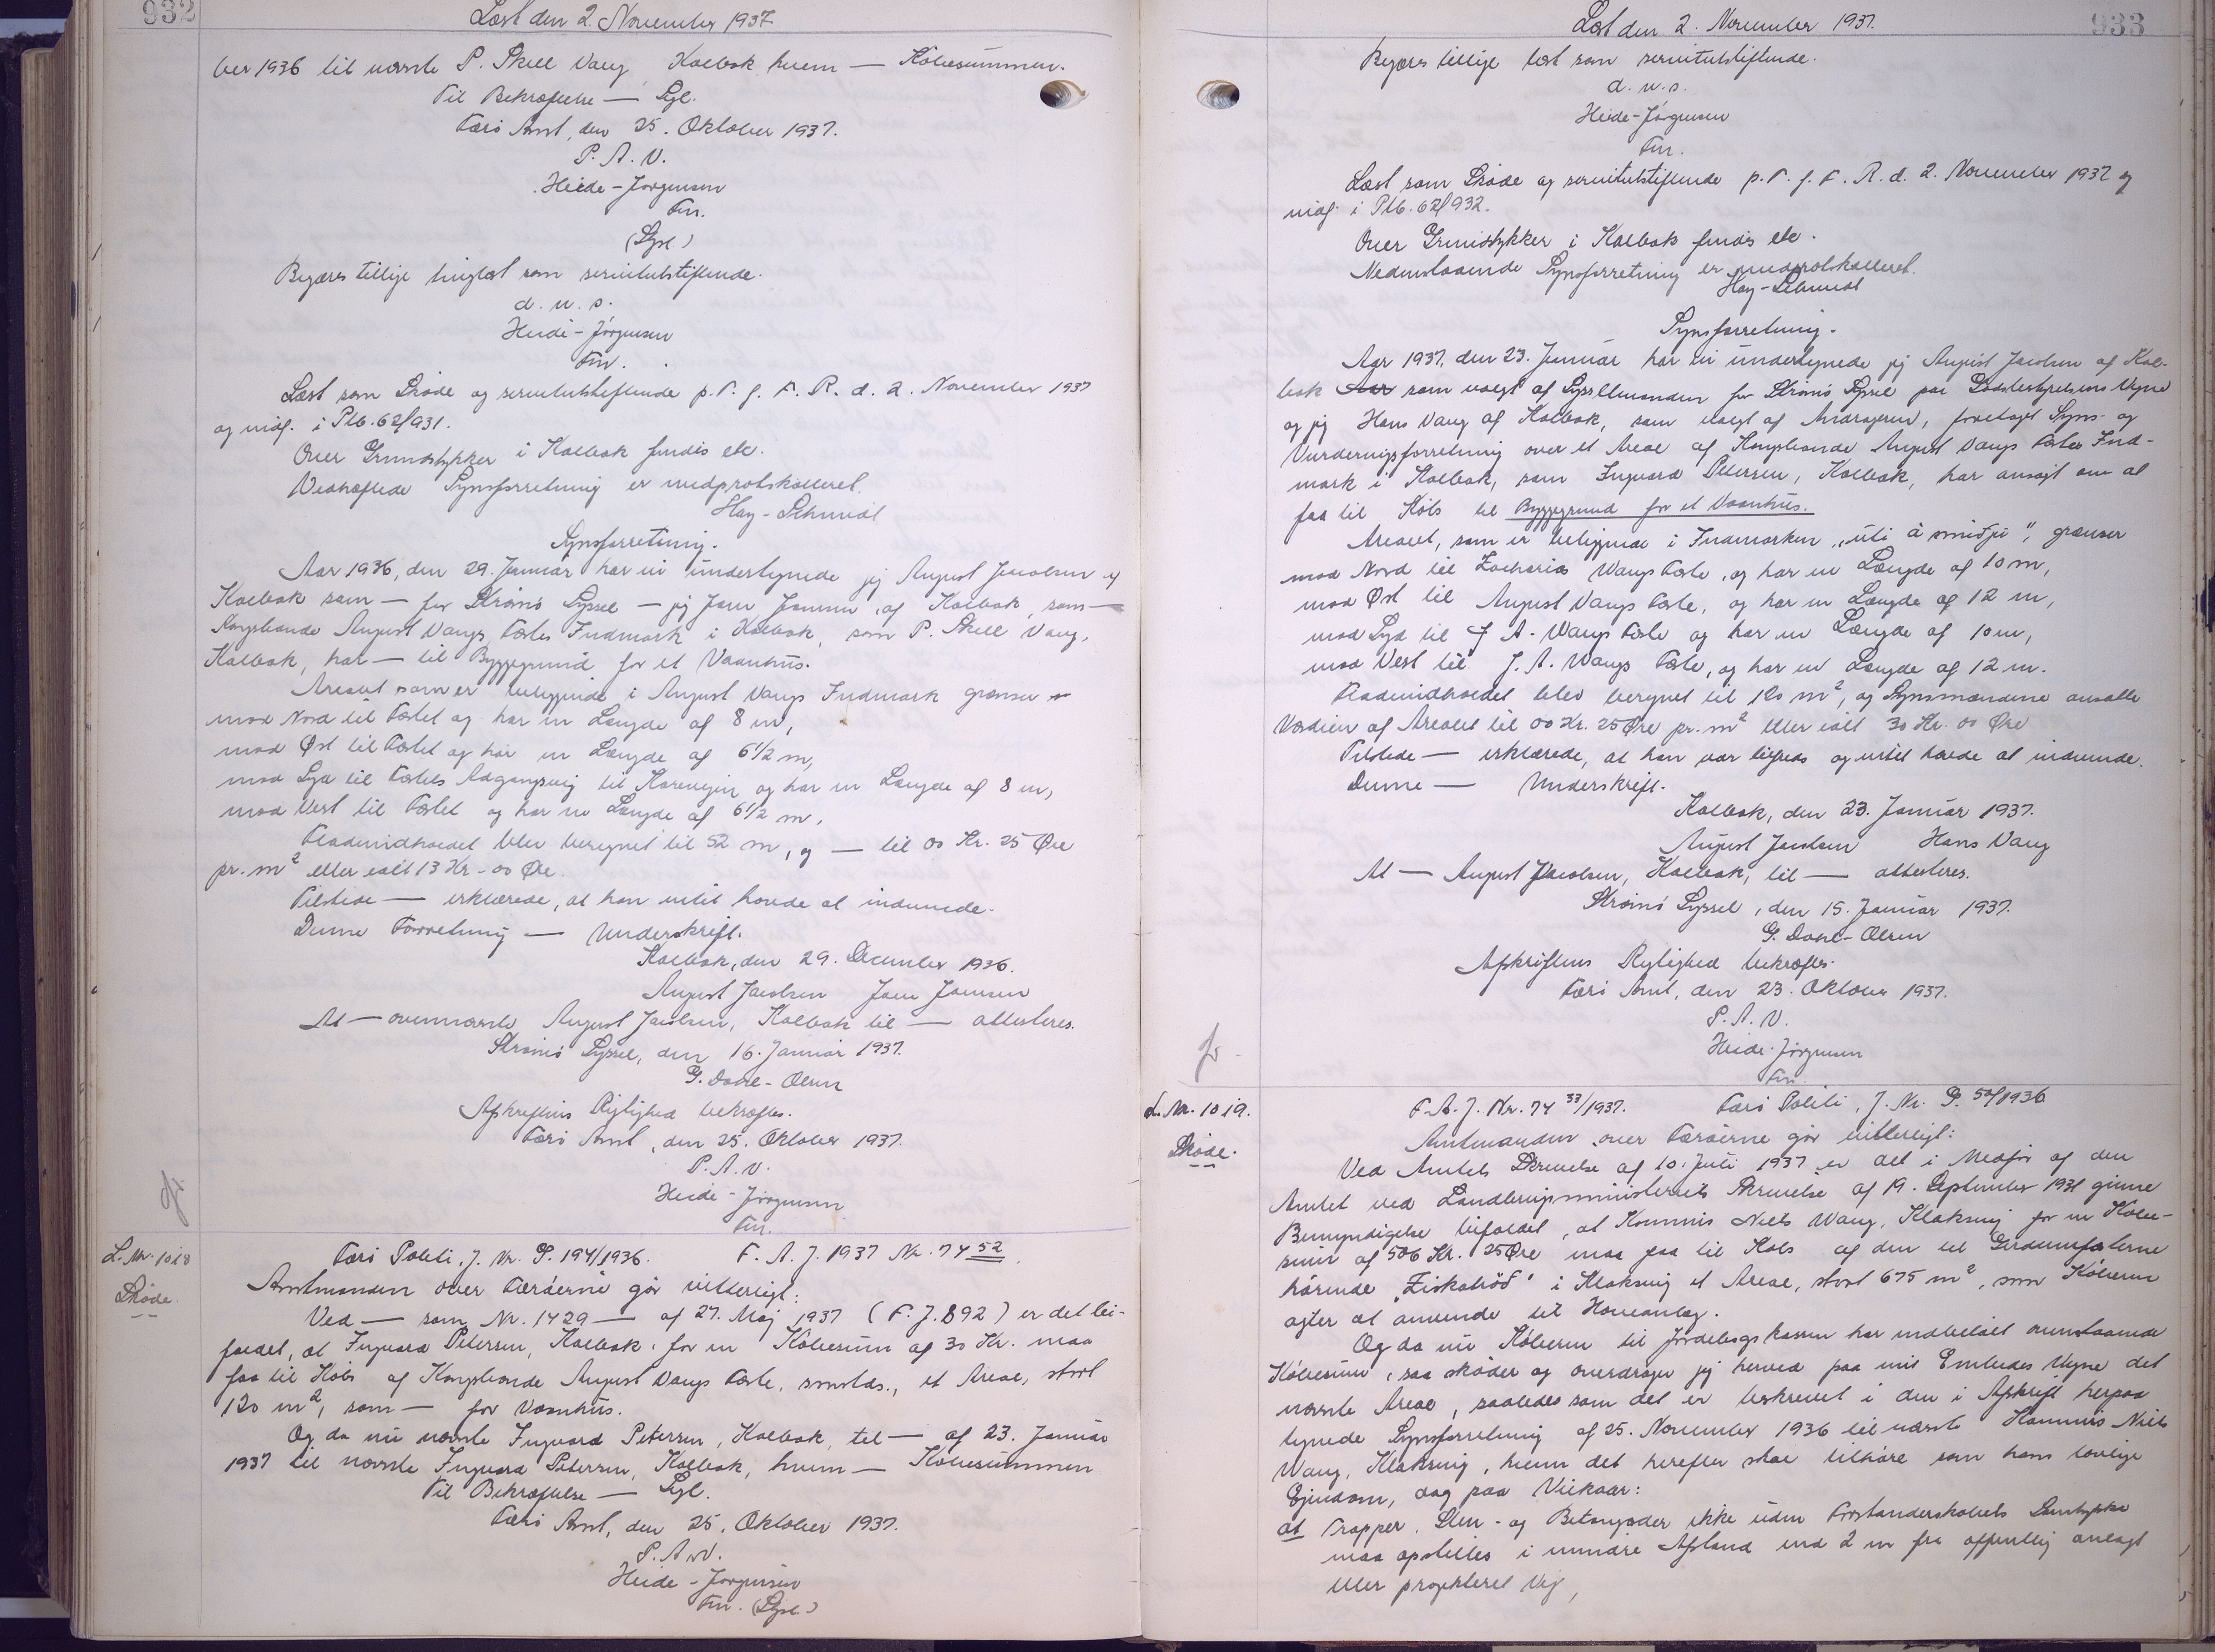 932
Læst den 2. November 1937
ber 1936 til nævnte P. Skeel Vang, Kolbak, hvem — Købesummen.
Til Bekræftelse — Sgl.
Færø Amt, den 25. Oktober 1937.
P. A. V.
Heide-Jørgensen
Fm.
(Sgl.)
Begæres tillige tinglæst som servitutstiftende.
d. u. s.
Heide-Jørgensen
Fm.
Læst som Skøde og servitutstiftende p. T. f. F. R. d. 2. November 1937
og indf. i Ptb. 62/931.
Over Grundstykker i Kolbak findes etc.
Vedhæftede Synsforretning er medprotokolleret.
Hay-Schmidt
Synsforretning.
Aar 1936, den 29. Januar har vi undertegnede jeg August Jacobsen af
Kolbak som — for Strømø Syssel — jeg Jens Jensen, af Kolbak, som —
Kongsbonde August Vangs Fæstes Indmark i Kolbak, som P. Skeel Vang,
Kolbak, har — til Byggegrund for et Vaanhus.
Arealet som er beliggende i August Vangs Indmark grænser
mod Nord til Fæstet og har en Længde af 8 m,
mod Øst til Fæstet og har en Længde af 6 1/2 m,
mod Syd til Fæstets Adgangsvej til Hovedvejen og har en Længde af 8 m,
mod Vest til Fæstet og har en Længde af 6 1/2 m.
Fladeindholdet blev beregnet til 52 m, og — til 00 Kr. 25 Øre
pr. m² eller ialt 13 Kr - 00 Øre.
Tilstede — erklærede, at han intet havde at indvende.
Denne Forretning — Underskrift.
Kolbak, den 29. December 1936.
August Jacobsen Jens Jensen
At — ovennævnte August Jacobsen, Kolbak til — attesteres.
Strømø Syssel, den 16. Januar 1937.
G. Dahl-Olsen
Afskriftens Rigtighed bekræftes.
Færø Amt, den 25. Oktober 1937.
P. A. V.
Heide-Jørgensen
Fm.
L. Nr. 1018
Skøde.
Færø Politi, J. Nr. P. 194/1936. F. A. J. 1937 Nr. 74 52.
Amtmanden over Færøerne gør vitterligt:
Ved — som Nr. 1429 — af 27. Maj 1937 (F. J. 892) er det bi-
faldet, at Ingvard Petersen, Kolbak, for en Købesum af 30 Kr. maa
faa til Køb af Kongsbonde August Vangs Fæste, smstds., et Areal, stort
120 m², som — for Vaanhus.
Og da nu nævnte Ingvard Petersen, Kolbak, til — af 23. Januar
1937 til nævnte Ingvard Petersen, Kolbak, hvem — Købesummen
Til Bekræftelse — Sgl.
Færø Amt, den 25. Oktober 1937.
P. A. V.
Heide-Jørgensen
Fm. (Sgl.)
933
Læst den 2. November 1937.
Begæres tillige læst som servitutstiftende.
d. u. s.
Heide-Jørgensen
Fm.
Læst som Skøde og servitutstiftende p. T. f. F. R. d. 2. November 1937 og
indf. i Ptb. 62/932.
Over Grundstykker i Kolbak findes etc.
Nedenstaaende Synsforretning er medprotokolleret.
Hay-Schmidt
Synsforretning.
Aar 1937, den 23. Januar har vi undertegnede jeg August Jacobsen af Kol-
bak som valgt af Sysselmanden for Strømø Syssel paa Jordstyrelsens Vegne
og jeg Hans Vang af Kolbak, som valgt af Andrageren, foretaget Syns- og
Vurderingsforretning over et Areal af Kongsbonde August Vangs Fæstes Ind-
mark i Kolbak, som Ingvard Petersen, Kolbak, har ansøgt om at
faa til Købs til Byggegrund for et Vaanhus.
Arealet, som er beliggende i Indmarken „úti á smiðju", grænser
mod Nord til Zacharias Wangs Fæste, og har en Længde af 10 m,
mod Øst til August Vangs Fæste, og har en Længde af 12 m,
mod Syd til J. A. Wangs Fæste og har en Længde af 10 m,
mod Vest til J. A. Wangs Fæste, og har en Længde af 12 m.
Fladeindholdet blev beregnet til 120 m², og Synsmændene ansatte
Værdien af Arealet til 00 Kr. 25 Øre pr. m² eller ialt 30 Kr. 00 Øre
Tilstede — erklærede, at han var tilfreds og intet havde at indvende.
Denne — Underskrift.
Kolbak, den 23. Januar 1937.
August Jacobsen Hans Vang
At — August Jacobsen, Kolbak, til — attesteres.
Strømø Syssel, den 15. Januar 1937.
G. Dahl-Olsen
Afskriftens Rigtighed bekræftes.
Færø Amt, den 23. Oktober 1937.
P. A. V.
Heide-Jørgensen
Fm.
L. Nr. 1019.
Skøde.
F. A. J. Nr. 74 33/1937. Færø Politi, J. Nr. P. 50/1936
Amtmanden over Færøerne gør vitterligt:
Ved Amtets Skrivelse af 10. Juli 1937 er det i Medfør af den
Amtet ved Landbrugsministeriets Skrivelse af 19. September 1931 givne
Bemyndigelse bifaldet, at Kommis Niels Wang, Klaksvig for en Købe-
sum af 506 Kr. 25 Øre maa faa til Købs af den til Gerdumfæsterne
hørende „Fiskatrøð" i Klaksvig et Areal, stort 675 m², som Køberen
agter at anvende til Haveanlæg.
Og da nu Køberen til Jordebogskassen har indbetalt ovenstaaende
Købesum, saa skøder og overdrager jeg herved paa mit Embedes Vegne det
nævnte Areal, saaledes som det er beskrevet i den i Afskrift herpaa
tegnede Synsforretning af 25. November 1936 til nævnte Kommis Niels
Wang, Klaksvig, hvem det herefter skal tilhøre som hans lovlige
Ejendom, dog paa Vilkaar:
at Trapper, Sten- og Betongæder ikke uden Forstanderskabets Samtykke
maa opstilles i mindre Afstand end 2 m fra offentlig anlagt
eller projekteret Vej,